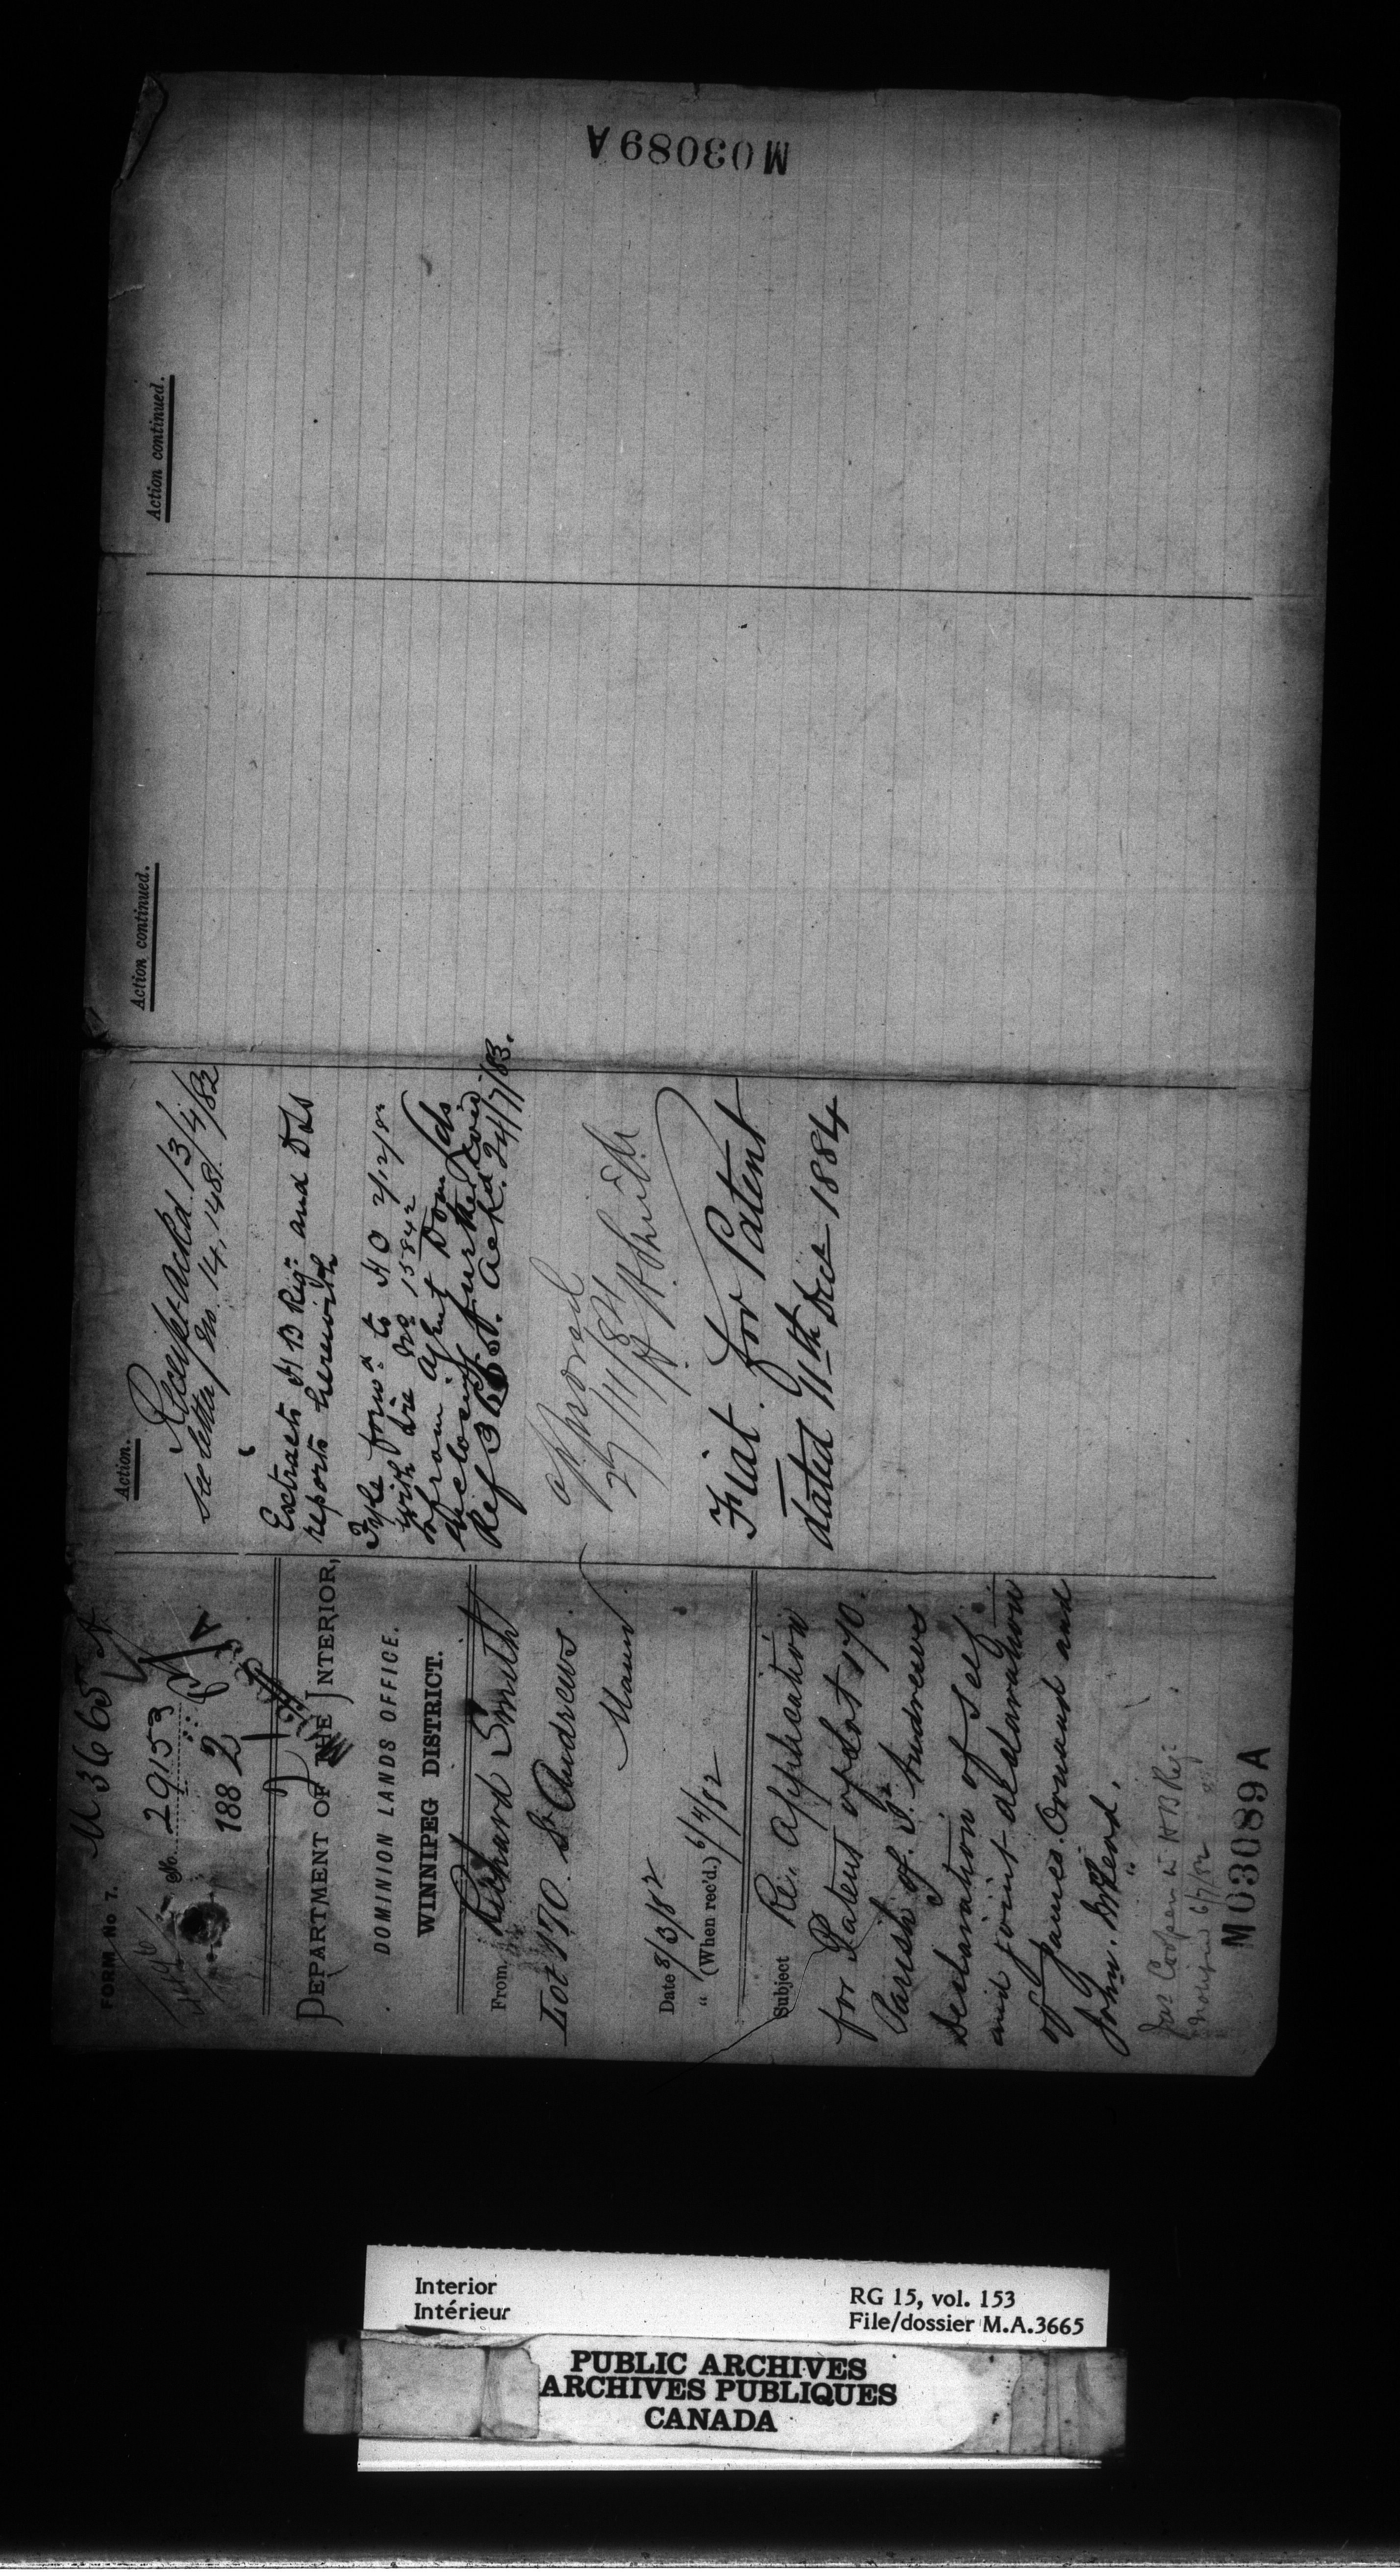 FORM No 7.
M 3665
No. 29153
1882
DEPARTMENT OF THE INTERIOR,
DOMINION LANDS OFFICE.
WINNIPEG DISTRICT.
From Richard Smith
Lot 170 St Andrews.
Mann
Date 8/3/82
" (When rec'd.) 6/4/82
Subject Re. Application
for Patent of Lot 170.
Parish of St. Andrews
declaration of self.
and joint declaration
of James. Ormand and
John. McLeod.
Jas Cooper H B Reg
6/7/82
M03089A
Action.
Receipt ackd. 13/4/82
See letter No. 14,148
Extracts H B Regr and DLS
reports herewith
forwd to H O 2/12/82
with No 15842
from Agent Dom Lds
enclosing further
Ref 3665. Ackd 24/7/83.
approved
27/11/84
Fiat for Patent
dated 11th Dect 1884
Action continued.
Action continued.
M03089A
Interior
Intérieur
RG 15, vol. 153
File/dossier M.A.3665
PUBLIC ARCHIVES
ARCHIVES PUBLIQUES
CANADA